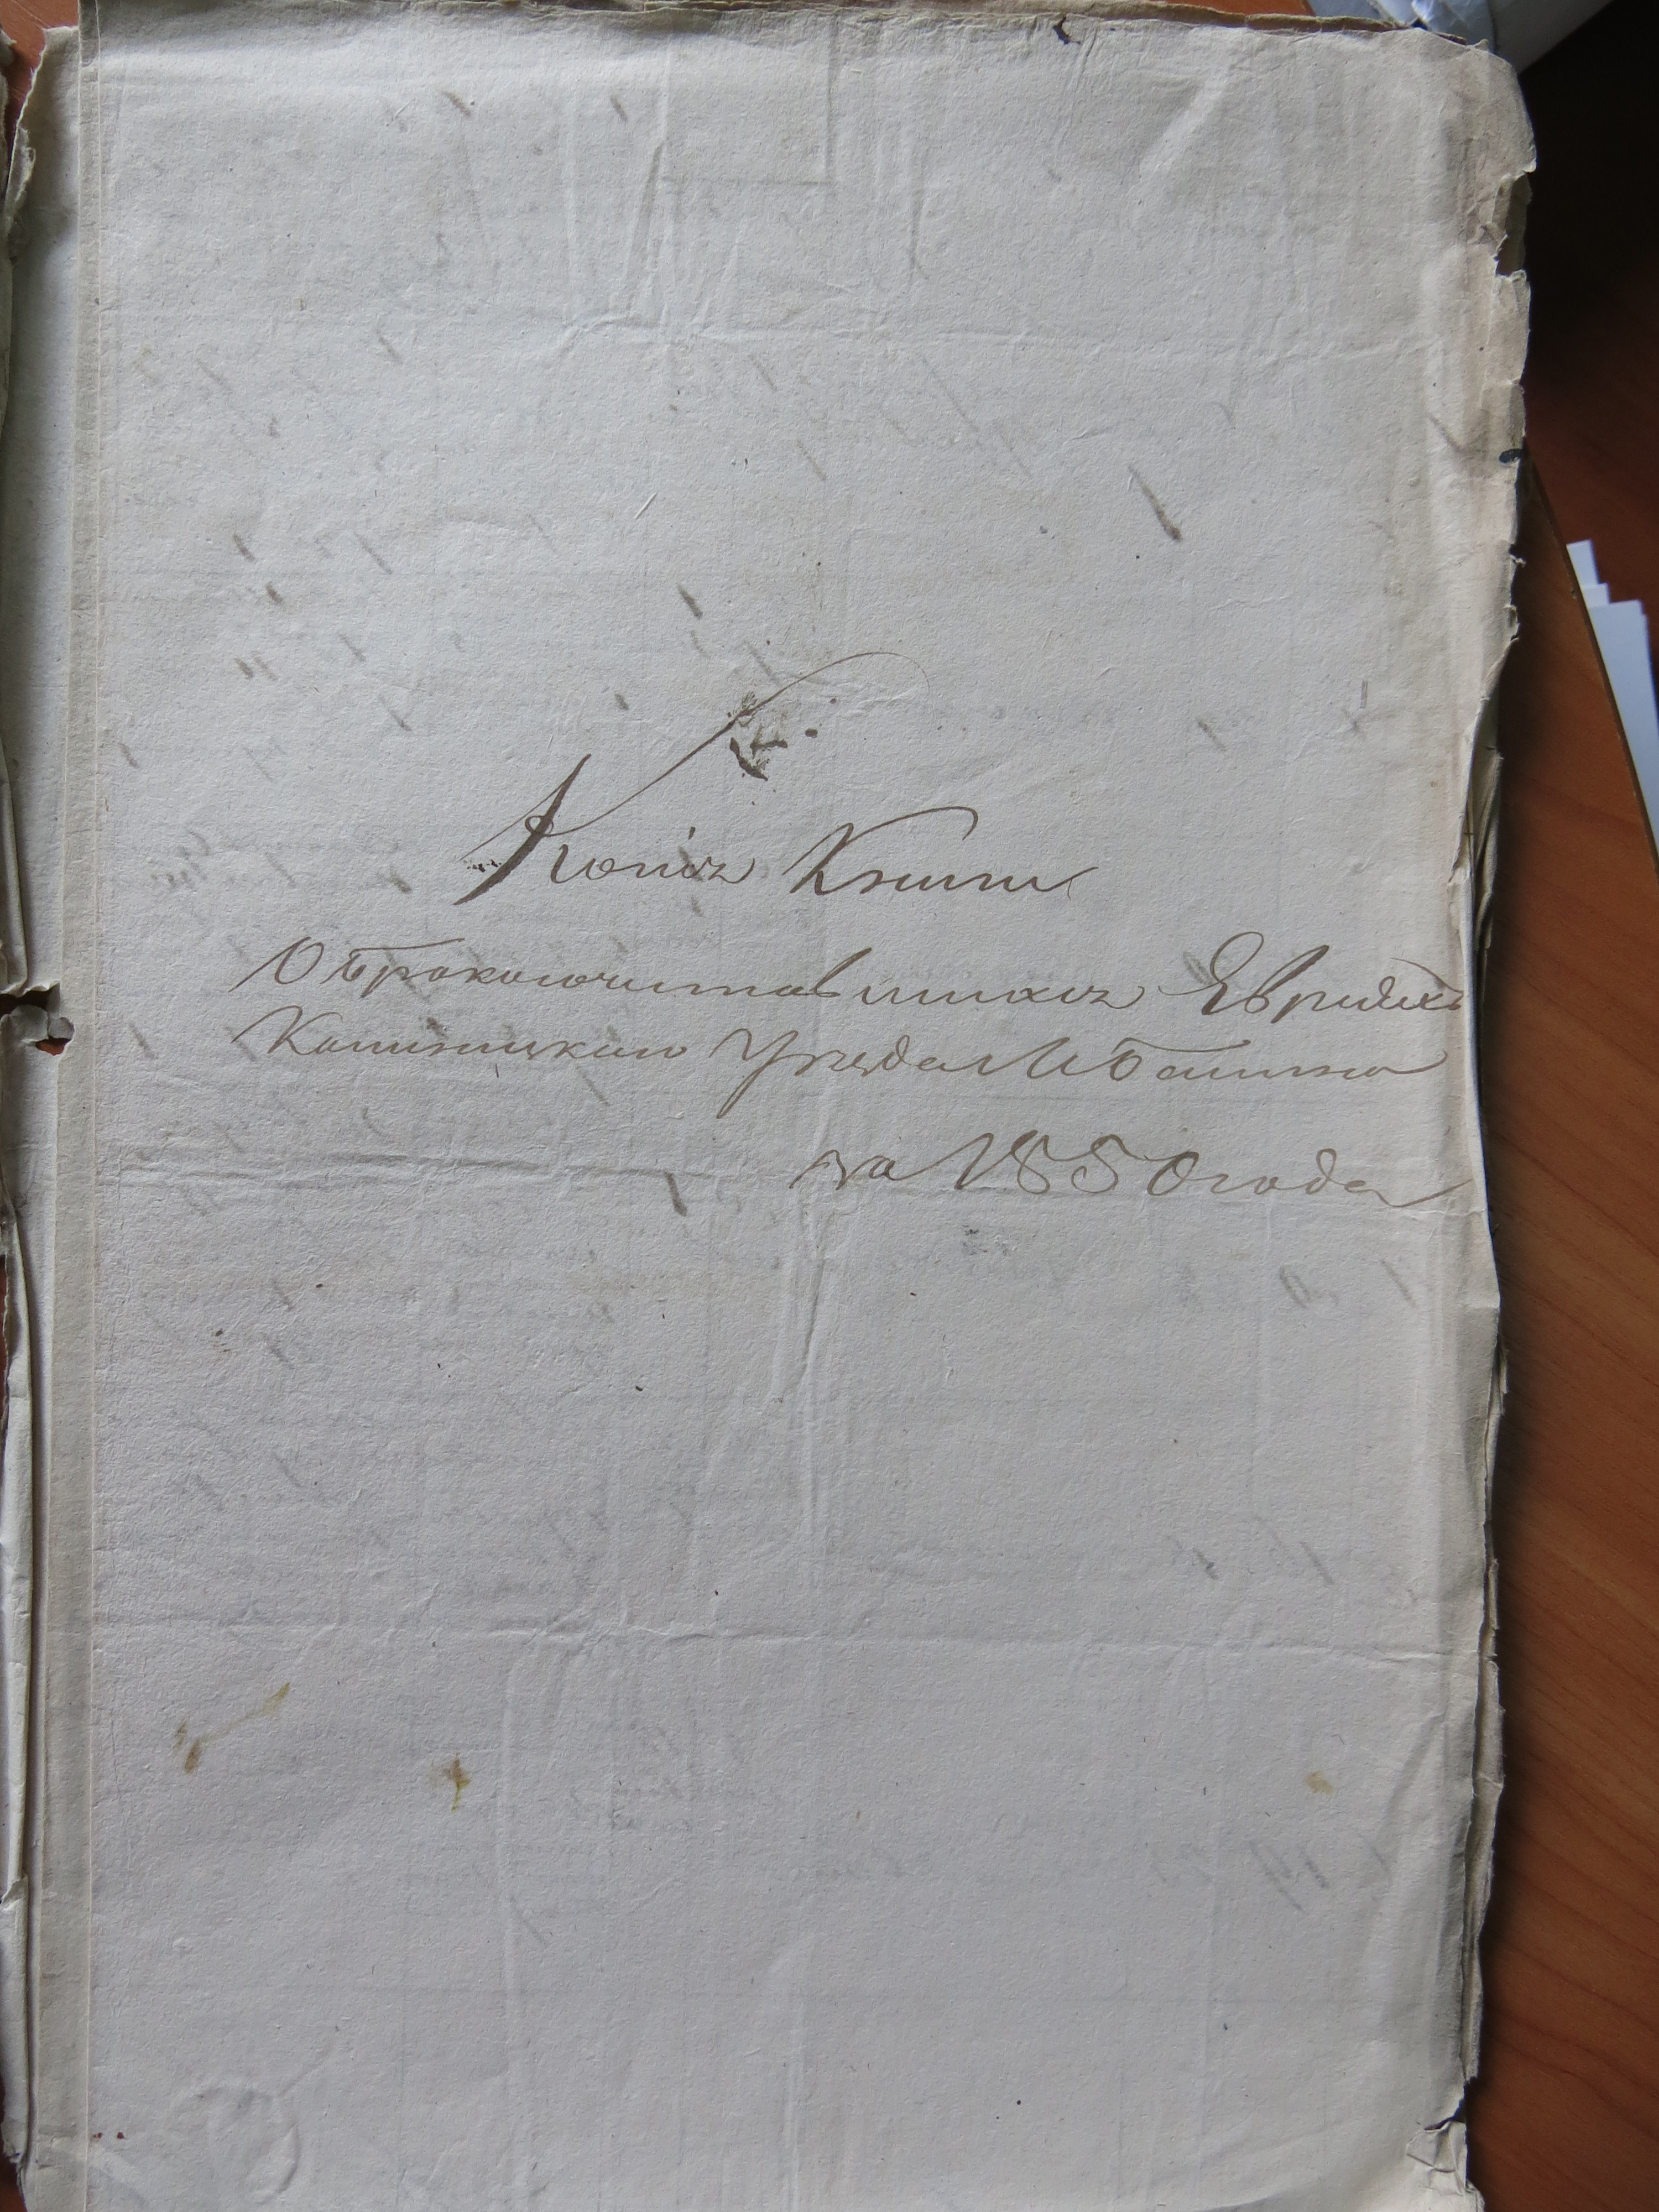 Копія Книги
О бракосочитавшихся Евреяхъ
Каменецкаго Уезда М
за 1850 года